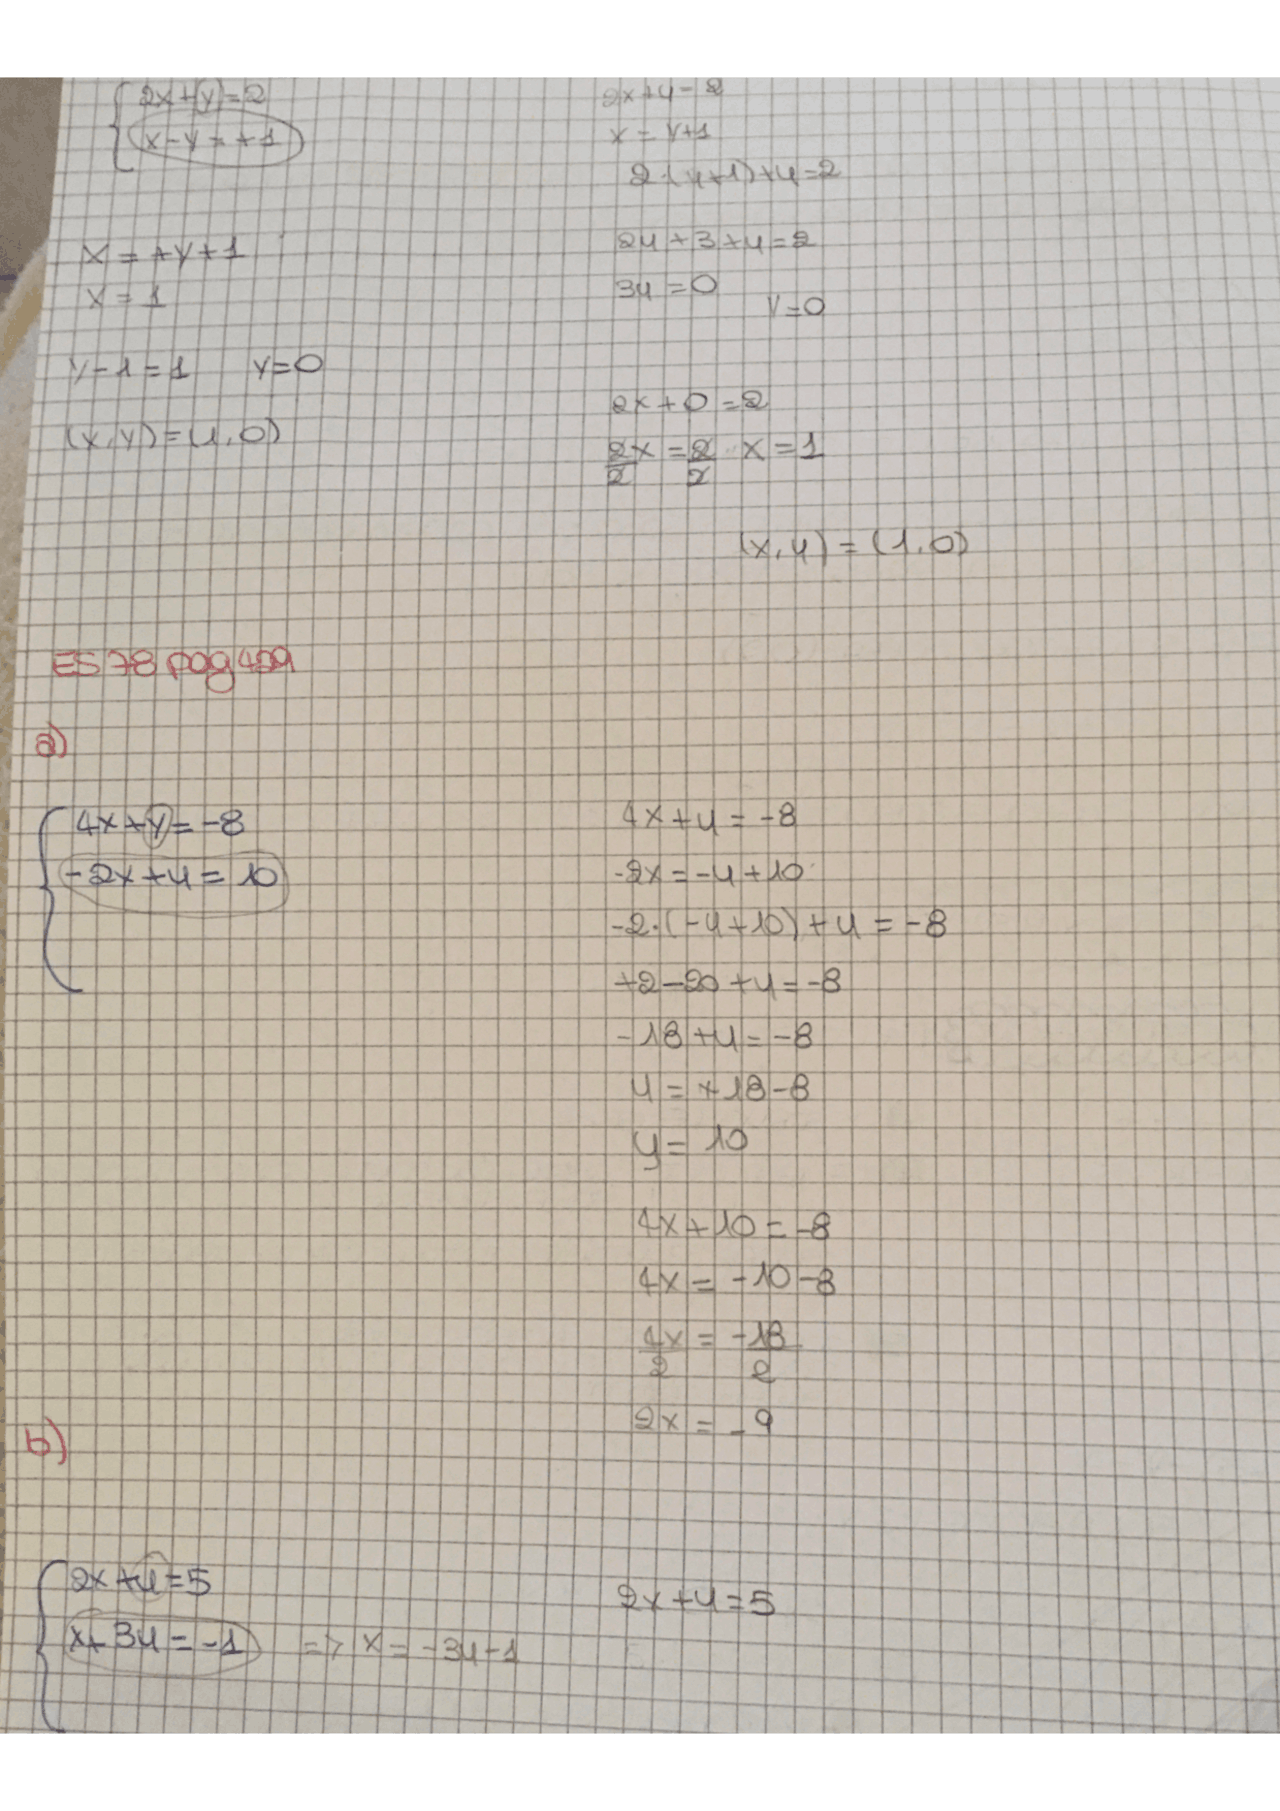 2x+y=2
x-y=+1
x=+y+1
x=1
y-1=1 y=0
(x,y)=(1,0)
2x+y=2
x=y+1
2·(y+1)+y=2
2y+3+y=2
3y=0 y=0
2x+0=2
2x/2=2/2 x=1
(x,y)=(1,0)
ES 78 pag 459
a)
4x+y=-8
-2x+y=10
4x+y=-8
-2x=-y+10
-2·(-y+10)+y=-8
+2-20+y=-8
-18+y=-8
y=+18-8
y=10
4x+10=-8
4x=-10-8
4x/2=-18/2
2x=-9
b)
2x+y=5
x+3y=-1 => x=-3y-1
2x+y=5